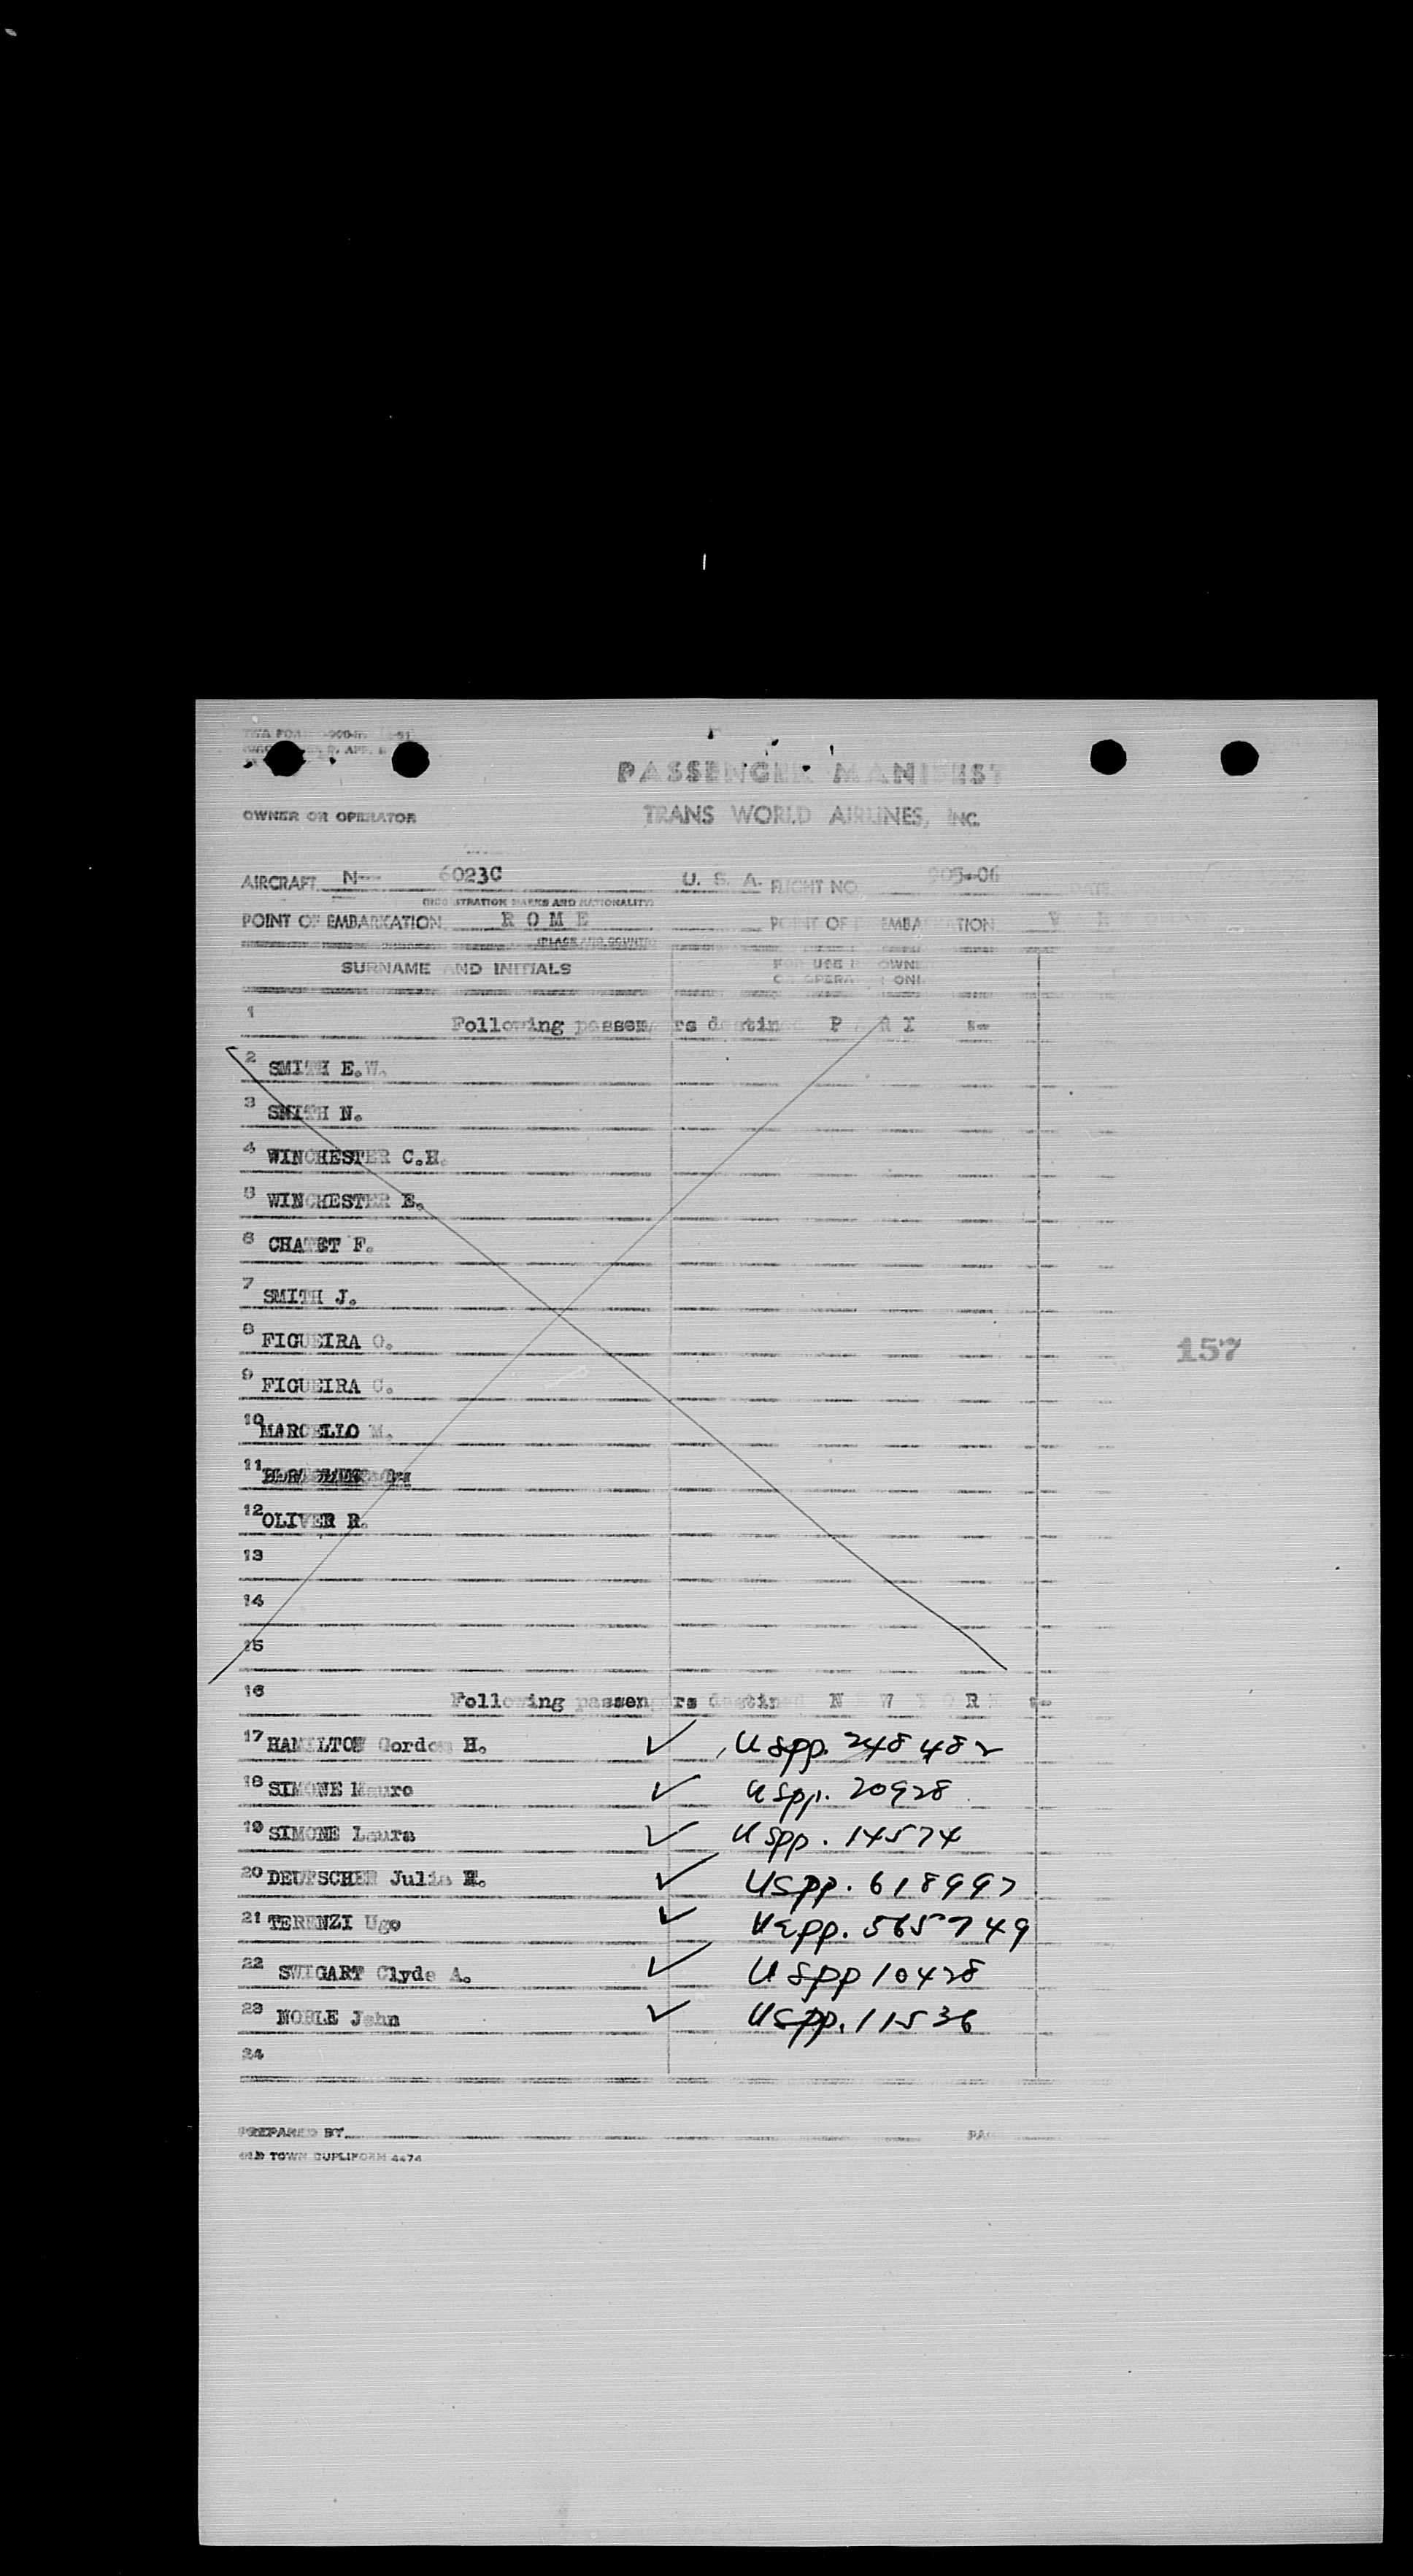 PASSENGER MANIFEST
OWNER OR OPERATOR TRANS WORLD AIRLINES, INC.
AIRCRAFT N— 6023C U. S. A. FLIGHT NO. 905-06
(REGISTRATION MARKS AND NATIONALITY)
POINT OF EMBARKATION R O M E POINT OF EMBARKATION
(PLACE AND COUNTRY)
SURNAME AND INITIALS FOR USE OWNER
OR OPERATOR ONLY
1 Following passengers destined P A R I :-
2 SMITH E.W.
3 SMITH N.
4 WINCHESTER C.H.
5 WINCHESTER E.
6 CHATET F.
7 SMITH J.
8 FIGUEIRA O.
9 FIGUEIRA C.
10 MARCELLO M.
11
12 OLIVER R.
13
14
15
16 Following passengers destined N E W Y O R K :-
17 HAMILTON Gordon H. ✓ USpp. 248482
18 SIMONE Mauro ✓ USpp. 20928
19 SIMONE Laura ✓ USpp. 14574
20 DEUTSCHER Julia ✓ USpp. 618997
21 TERENZI Ugo ✓ USpp. 565749
22 SWIGART Clyde A. ✓ USpp 10428
23 NOBLE John ✓ USpp. 11536
24
157
PREPARED BY
OLD TOWN DUPLIFORM 4474